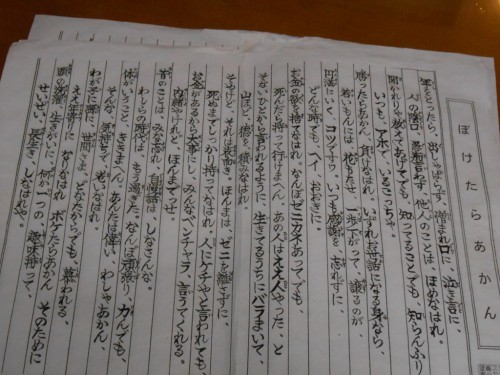 ぼけたらあかん
年をとったら、出しゃばらず、憎まれ口に、泣き言に、
人の陰口、愚痴言わず、他人のことは、ほめなはれ。
聞かれりゃ教えてあげてでも、知ってることでも、知らんふり
いつも、アホで、いるこっちゃ。
勝ったらあかん、負けなはれ。いづれお世話になる身なら、
若いもんには花もたせ、一歩下がって、譲るのが、
円満にいく、コツですわ。いつも感謝を、忘れずに、
どんな時でも、ヘイ、おおきに。
お金の欲を捨てなはれ。なんぼゼニカネあってでも、
死んだら持って行けまへん。あの人はええ人やった、と
そないひとから言われるように、生きてるうちにバラまいて、
山ほど、徳を、積みなはれ。
そやけど、それは表向き、ほんまは、ゼニを離さずに、
死ぬまでしっかり持ってなはれ 人にケチやと言われても、
お金があるから大事にし、みんな、ベンチャラ、言うてくれる。
内緒やけれど、ほんまでっせ。
昔のことは、みな忘れ 自慢話は、しなさんな。
わしらの時代は、もう過ぎた。なんぼ頑張り、力んでも、
体がいうこと、ききまへん。あんたは偉い、わしゃあかん、
そんな、気持で、老いなはれ。
わが子に孫に、世間さま、どなたからでも、慕われる、
ええ年寄りに、なりなはれ ボケたらあかん そのために
頭の洗濯、生きがいに、何か一つの、趣味持って、
せいぜい、長生き、しなはれや。